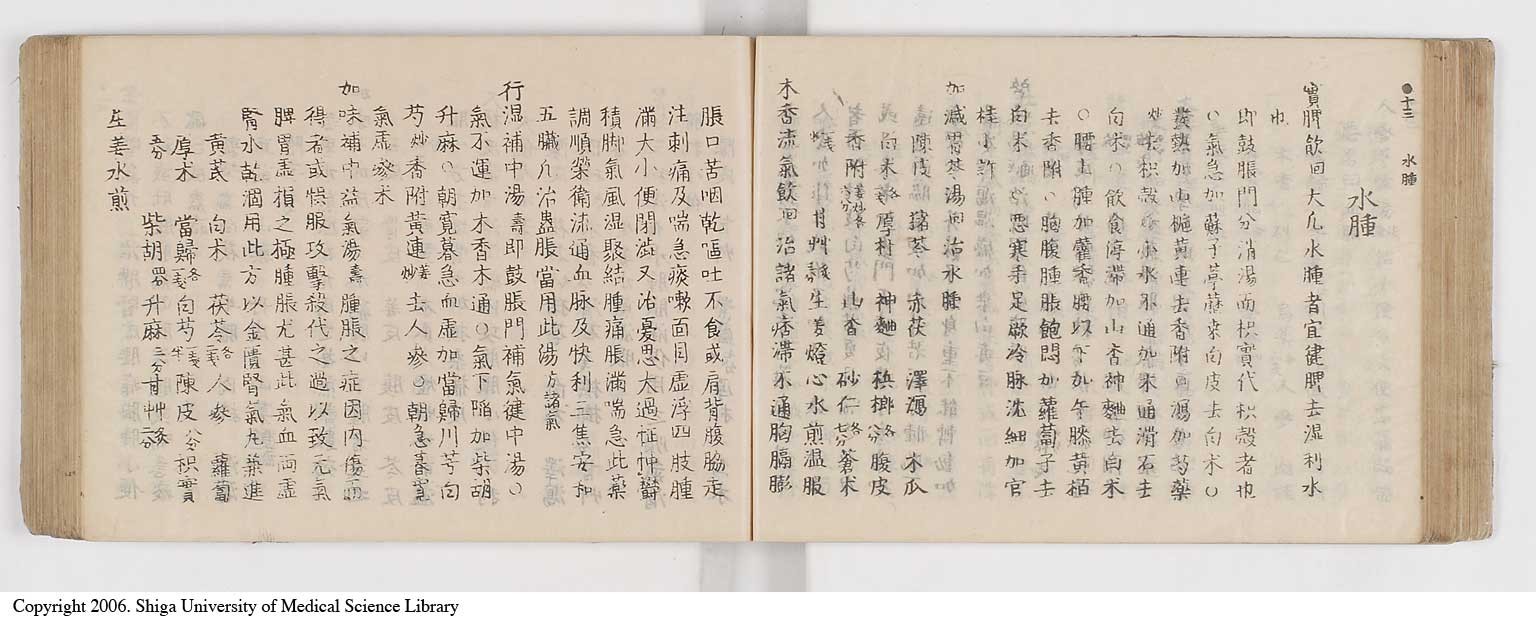 ●十三 水腫
水腫
實脾飲回 大凡水腫者宜健脾去湿利水
也
即鼓脹門分消湯而枳實代枳殻者也
○氣急加蘇子葶藶桒白皮去白朮○
發熱加山梔黄連去香附○瀉加芍藥
炒去枳殻○小水不通加木通滑石去
白朮○飲食停滞加山査神麯去白朮
○腰上腫加藿香腰以下加牛膝黄栢
去香附○胸腹腫脹飽悶加蘿蔔子去
白朮○悪寒手足厥冷脉沈細加官
桂小許
加減胃苓湯回 治水腫
陳皮 茯苓 赤茯 澤瀉 木瓜
白朮 厚朴 神麯 檳榔 腹皮
香附 山査 砂仁 蒼朮
甘艸 生姜燈心水煎温服
木香流氣飲回 治諸氣痞滞不通胸膈膨
脹口苦咽乾嘔吐不食或肩背腹脇走
注刺痛及喘急痰嗽面目虚浮四肢腫
滿大小便閉澁又治憂思太過怔忡鬱
積脚氣風湿聚結腫痛脹滿喘急此藥
調順榮衛流通血脉及快利三焦安和
五臓凡治蟲脹當用此湯 方諸氣
行湿補中湯 壽 即鼓脹門補氣健中湯○
氣不運加木香木通○氣下陥加柴胡
升麻○朝寛暮急血虚加當歸川芎白
芍炒香附黄連姜炒去人参○朝急暮寛
氣虚参朮
加味補中益氣湯 壽 腫脹之症因内傷而
得者或悞服攻撃殺伐之過以致元氣
脾胃虚損之極腫脹尤甚此氣血両虚
腎水乾涸用此方以金匱腎氣丸兼進
黄芪 白朮 茯苓 人参 蘿蔔
厚朴 當歸 白芍 陳皮 枳實
柴胡 升麻 甘艸
生姜水煎
Copyright 2006. Shiga University of Medical Science Library